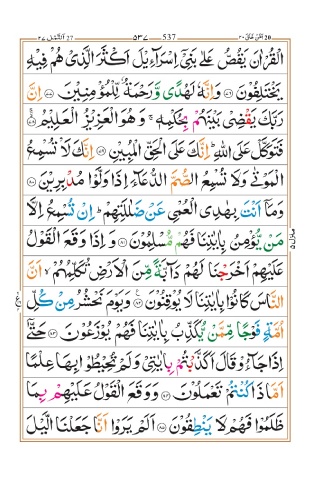 امن خلق ٢٠ ٥٣٧ 537 النمل ٢٧
الْقُرْاٰنَ يَقُصُّ عَلٰى بَنِيْۤ اِسْرَآءِيْلَ اَكْثَرَ الَّذِيْ هُمْ فِيْهِ
يَخْتَلِفُوْنَ ۝٧٦ وَاِنَّهٗ لَهُدًى وَّرَحْمَةٌ لِّلْمُؤْمِنِيْنَ ۝٧٧ اِنَّ
رَبَّكَ يَقْضِيْ بَيْنَهُمْ بِحُكْمِهٖ ۚ وَهُوَ الْعَزِيْزُ الْعَلِيْمُ ۝٧٨
فَتَوَكَّلْ عَلَى اللّٰهِ ؕ اِنَّكَ عَلَى الْحَقِّ الْمُبِيْنِ ۝٧٩ اِنَّكَ لَا تُسْمِعُ
الْمَوْتٰى وَلَا تُسْمِعُ الصُّمَّ الدُّعَآءَ اِذَا وَلَّوْا مُدْبِرِيْنَ ۝٨٠
وَمَاۤ اَنْتَ بِهٰدِي الْعُمْيِ عَنْ ضَلٰلَتِهِمْ ؕ اِنْ تُسْمِعُ اِلَّا
مَنْ يُّؤْمِنُ بِاٰيٰتِنَا فَهُمْ مُّسْلِمُوْنَ ۝٨١ وَاِذَا وَقَعَ الْقَوْلُ
عَلَيْهِمْ اَخْرَجْنَا لَهُمْ دَآبَّةً مِّنَ الْاَرْضِ تُكَلِّمُهُمْ ۙ اَنَّ
النَّاسَ كَانُوْا بِاٰيٰتِنَا لَا يُوْقِنُوْنَ ۝٨٢ وَيَوْمَ نَحْشُرُ مِنْ كُلِّ
اُمَّةٍ فَوْجًا مِّمَّنْ يُّكَذِّبُ بِاٰيٰتِنَا فَهُمْ يُوْزَعُوْنَ ۝٨٣ حَتّٰۤى
اِذَا جَآءُوْ قَالَ اَكَذَّبْتُمْ بِاٰيٰتِيْ وَلَمْ تُحِيْطُوْا بِهَا عِلْمًا
اَمَّا ذَا كُنْتُمْ تَعْمَلُوْنَ ۝٨٤ وَوَقَعَ الْقَوْلُ عَلَيْهِمْ بِمَا
ظَلَمُوْا فَهُمْ لَا يَنْطِقُوْنَ ۝٨٥ اَلَمْ يَرَوْا اَنَّا جَعَلْنَا الَّيْلَ
منزل ٥